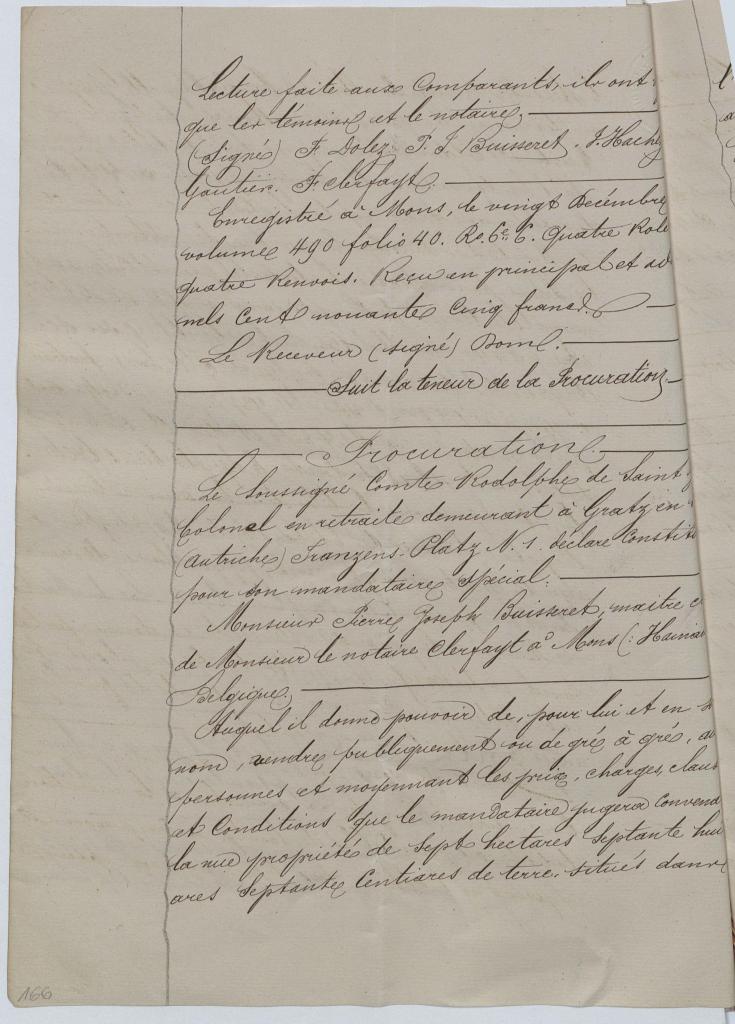 Lecture faite aux Comparants, ils ont
que les témoins et le notaire.
(Signé) F. Dolez. P. J. Buisseret. J. Hach
Gautier. F. Clerfayt.
Enregistré à Mons, le vingt Décembre
volume 490 folio 40. Ro. Ce 6. Quatre Rol
quatre Renvois. Reçu en principal et ad
nels Cent nonante Cinq francs.
Le Receveur (signé)
Suit la teneur de la Procuration
Procuration
Le Soussigné Comte Rodolphe de Saint
Colonel en retraite demeurant à Gratz en
(Autriche) Franzens-Platz N. 1. déclare Constit
pour son mandataire spécial.
Monsieur Pierre Joseph Buisseret, maitre c
de Monsieur le notaire Clerfayt à Mons (: Hainau
Belgique.
Auquel il donne pouvoir de, pour lui et en s
nom, vendre publiquement ou de gré à gré, au
personnes et moyennant les prix, charges, claus
et Conditions que le mandataire jugera Convena
la nue propriété de Sept hectares Septante hui
ares Septante Centiares de terre. situés dans
166